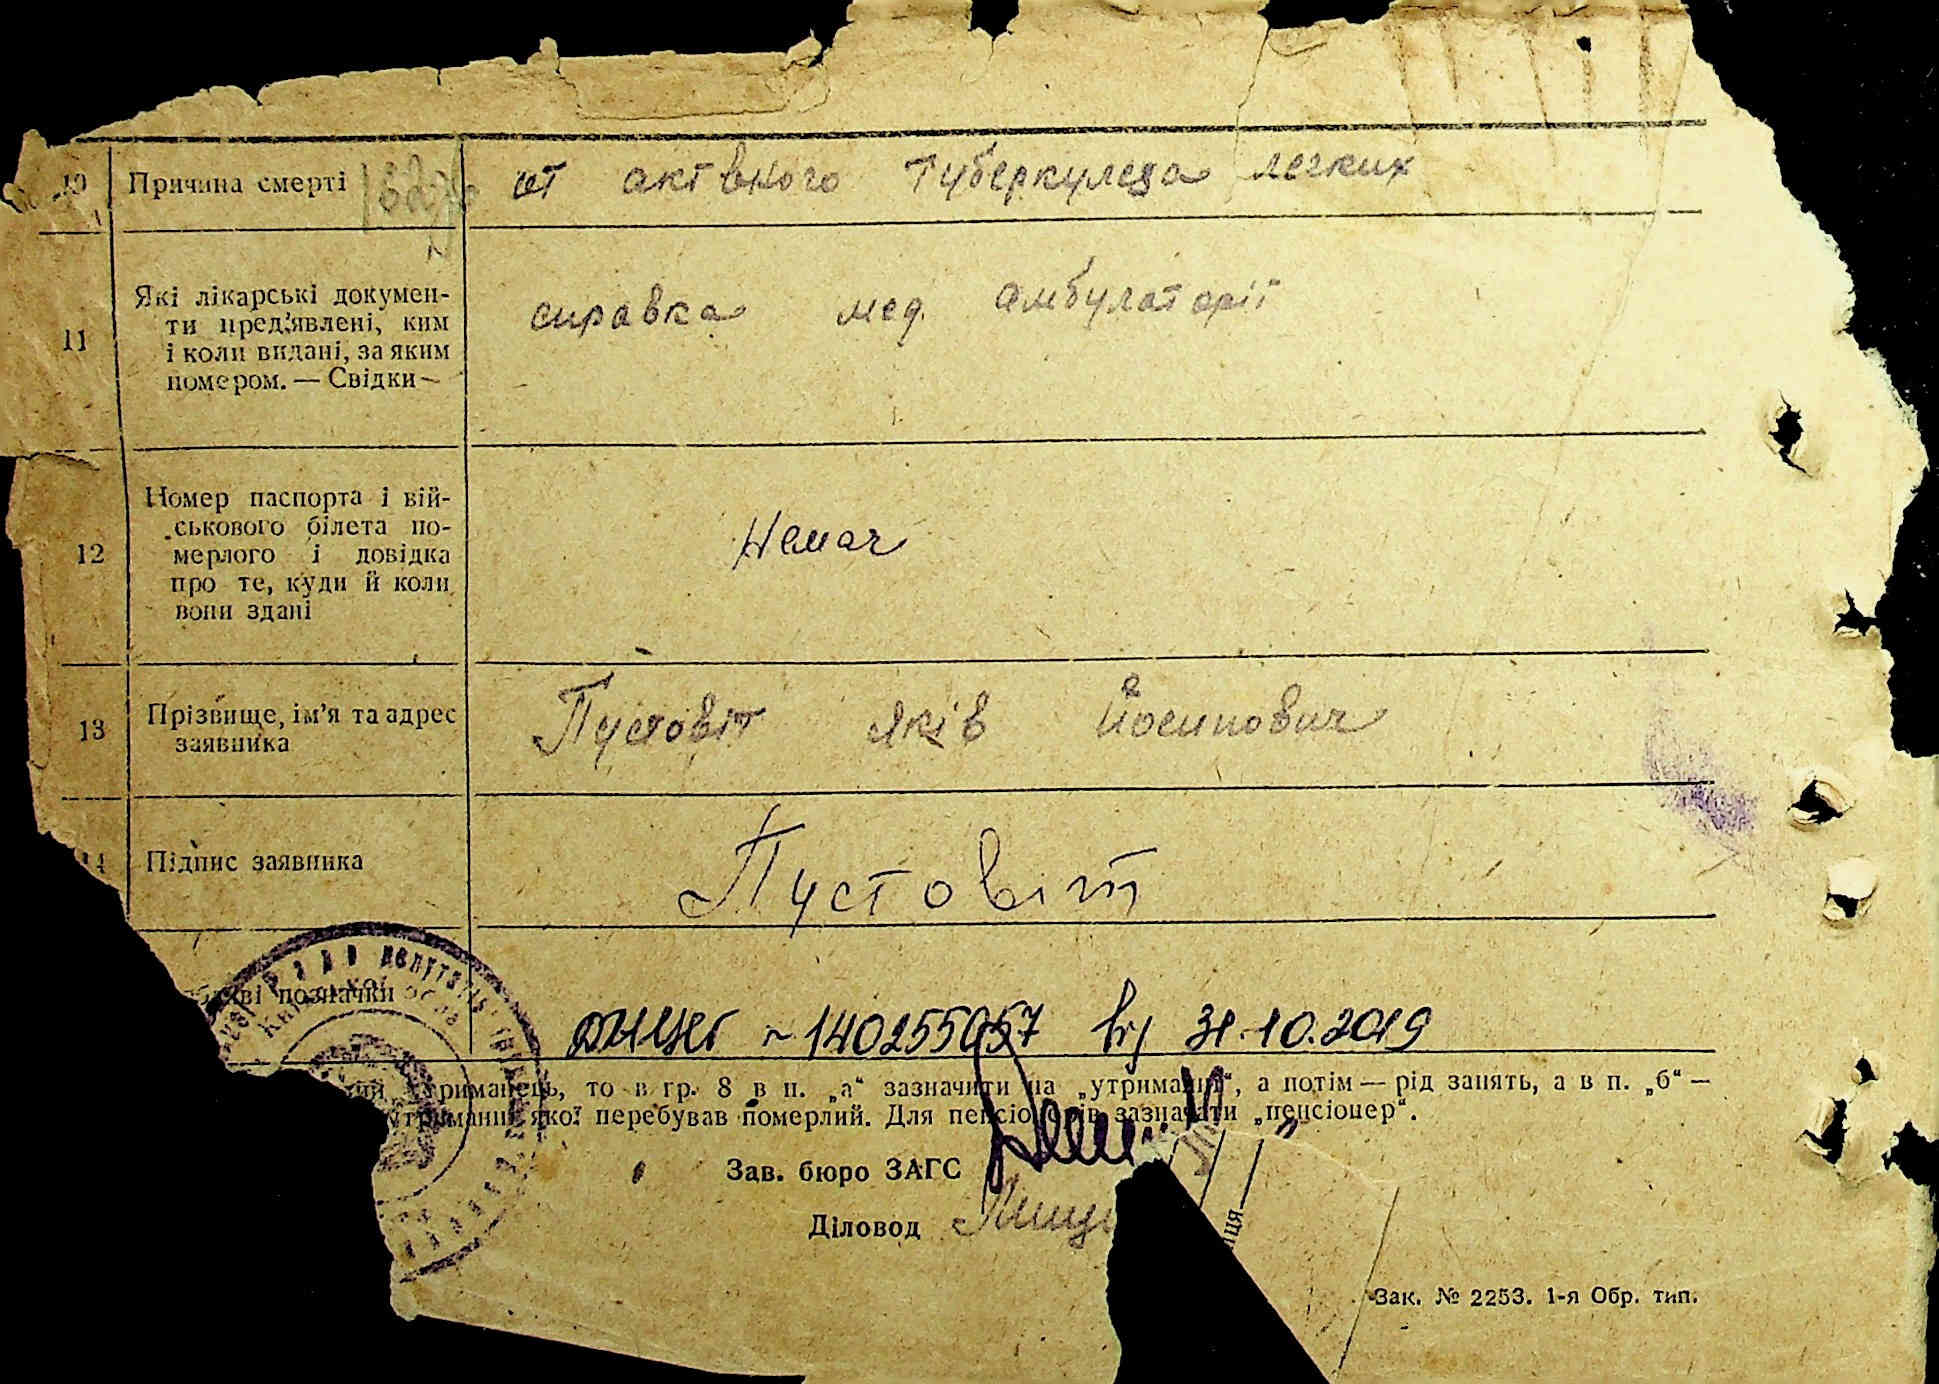 10 Причина смерті от активного туберкулеза легких
11 Які лікарські докумен-
ти пред'явлені, ким
і коли видані, за яким
номером. — Свідки —
справка мед. амбулаторії
12 Номер паспорта і вій-
ськового білета по-
мерлого і довідка
про те, куди й коли
вони здані
Немає
13 Прізвище, ім'я та адрес
заявника
Пустовіт Яків Йосипович
14 Підпис заявника
Пустовіт
позначки
№ 140255957 від 31.10.2019
то в гр. 8 в п. „а“ зазначити на „утриманні“, а потім — рід занять, а в п. „б“ —
утриманні якої перебував померлий. Для пенсіонерів зазначати „пенсіонер“.
Зав. бюро ЗАГС
Діловод
Зак. № 2253. 1-я Обр. тип.